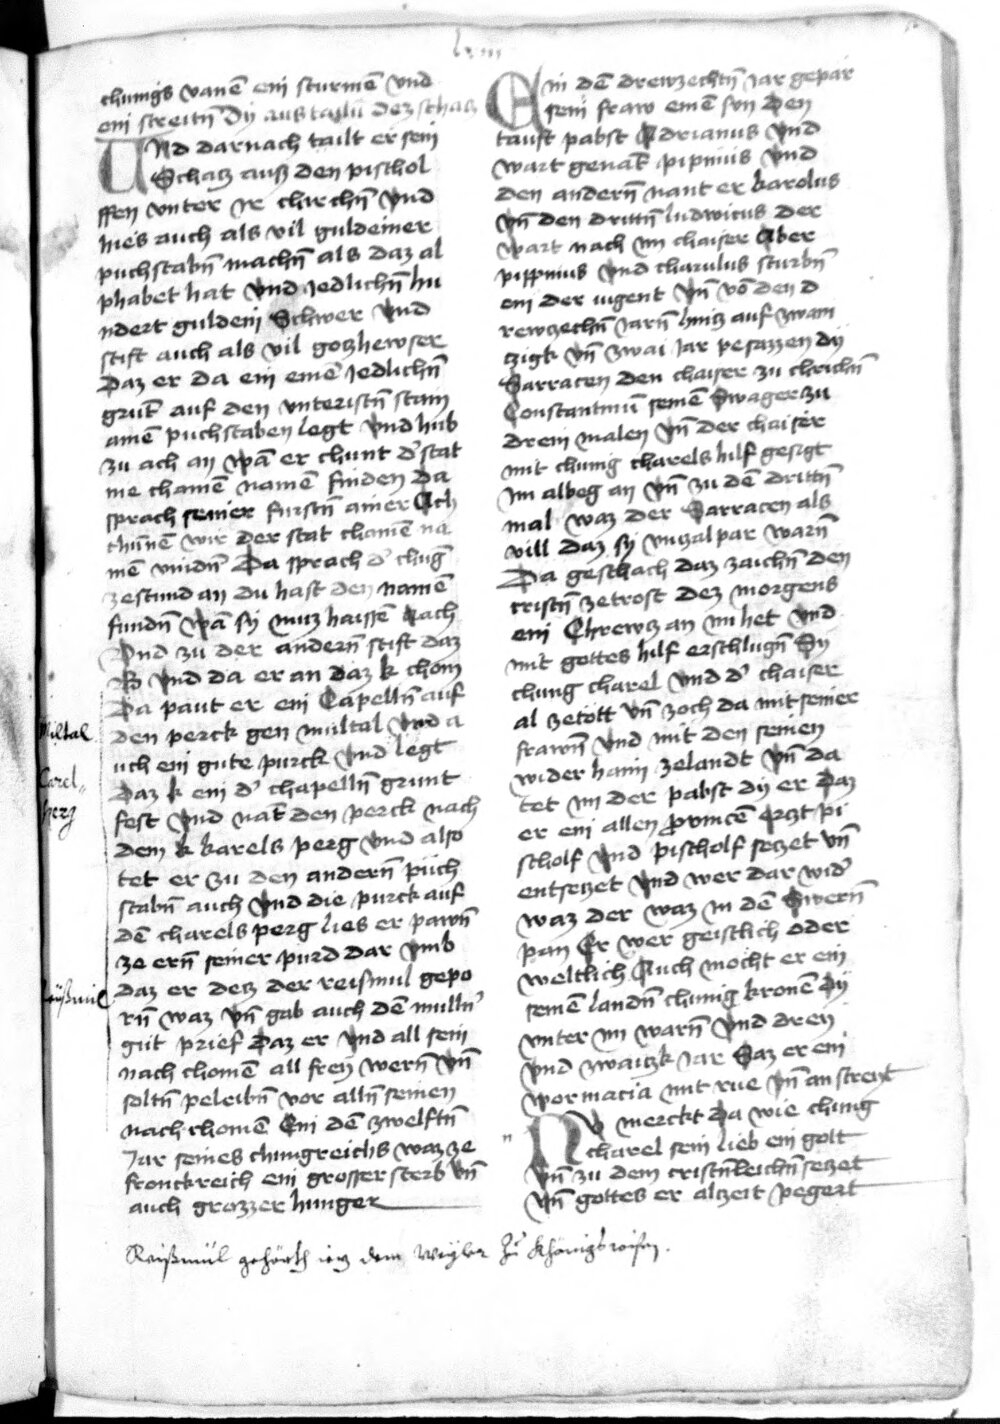 lxiii
chunigs vanē ein sturmē vnd
ein streitn̄ Dy austailū dez schacz
UNd darnach tailt er sein
Schacz auß den pischol
ffen vnter ir chirchn̄ vnd
hies auch als vil guldeiner
puchstabn̄ machn̄ als daz al
phabet hat vnd jedlichn̄ hu
ndert guldein Schwer vnd
stift auch als vil goczhewser
Daz er da ein einē jedlichn̄
grūt auf den vnteristn̄ stain
ainē puchstaben legt vnd hub
zu ach an wā er chunt d' stat
nie chainē namē finden da
sprach seiner furstn̄ ainer Ach
thunnē wir der stat chainē na
mē vindn̄ Da sprach d' chūg
zestund an du hast den namē
fundn̄ wā sy muz haissē Aach
Vnd zu der andern̄ stift daz
B vnd da er an daz k chom
Da paut er ein Capelln̄ auf
den perck gen miltal vnd a
uch ein gute purck vnd legt
Daz k ein d' chapelln̄ grunt
fest vnd nāt den perck nach
dem k karels perg vnd also
tet er zu den andern̄ püch
stabn̄ auch vnd die purck auf
dē charels perg lies er pawn̄
ze ern̄ seiner purd dar vmb
daz er decz der reismul gepo
rn̄ waz vn̄ gab auch dē mulln'
gūt prief Daz er vnd all sein
nach chomē all freÿ wern̄ vn̄
soltn̄ peleibn̄ vor alln̄ seinen
nachchomē Ein dē zwelftn̄
Jar seines chunigreichs waz ze
fronckreich ein grosser sterb vn̄
auch grozzer hunger
Miltal
Carel
berg
Reißmül
EIn dē drewzechtn̄ Jar gepar
sein fraw einē sun den
tauft pabst Adrianus vnd
wart genāt pipinus vnd
den andern̄ nant er karolus
vn̄ den drittn̄ ludwicus der
wart nach im chaiser Aber
pippinus vnd charulus sturbn̄
ein der iugent vn̄ vō den d
rewzechn̄ Jarn̄ hincz auf zwain
czigk vn̄ zwai Jar pesazzen dÿ
Sarracen den chaiser zu chrichn̄
Constantinū seinē Swager zu
drein malen vn̄ der chaiser
mit chunig charels hilf gesigt
Im albeg an vn̄ zu dē drittn̄
mal waz der Sarracen als
vill daz sÿ vnczalpar warn̄
Da geschach daz zaichn̄ den
cristn̄ zetrost dez morgens
ein Chrewcz an im het vnd
mit gottes hilf erschlugn̄ Sy
chunig charel vnd d' chaiser
al zetott vn̄ zoch da mit seiner
frawn̄ vnd mit den seinen
wider haim zelandt vn̄ da
tet im der pabst dÿ er Daz
er ein allen provincē erczt pi
scholf vnd pischolf seczet vn̄
entseczet vnd wer dar wid'
waz der waz in dē Swern̄
pan Er wer geistlich oder
weltlich Auch mocht er ein
seinē landn̄ chunig kronē dÿ
vnter im warn̄ vnd dreÿ
vnd zwaiczk Jar Saz er ein
wormacia mit rue vn̄ an streyt
NV merckt da wie chunig
charel sein lieb ein golt
vn̄ zu dem cristnleichn̄ seczet
vn̄ gottes er alczeit pegert
Reißmül gehörth iez dem Weÿler zu Khönigkwisen.